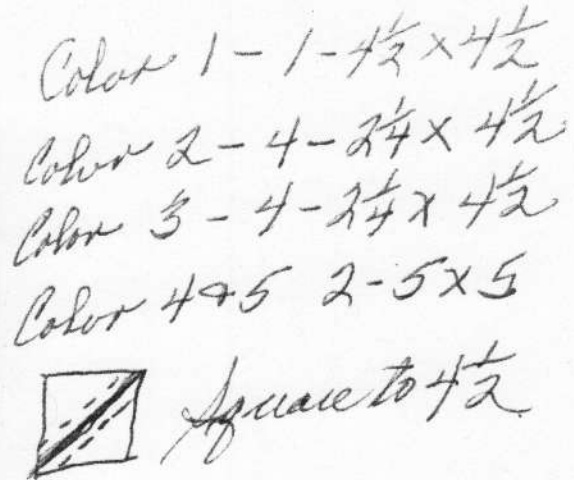 Color 1 - 1 - 4½ x 4½
Color 2 - 4 - 2¼ x 4½
Color 3 - 4 - 2¼ x 4½
Color 4 & 5 2 - 5 x 5
Square to 4½